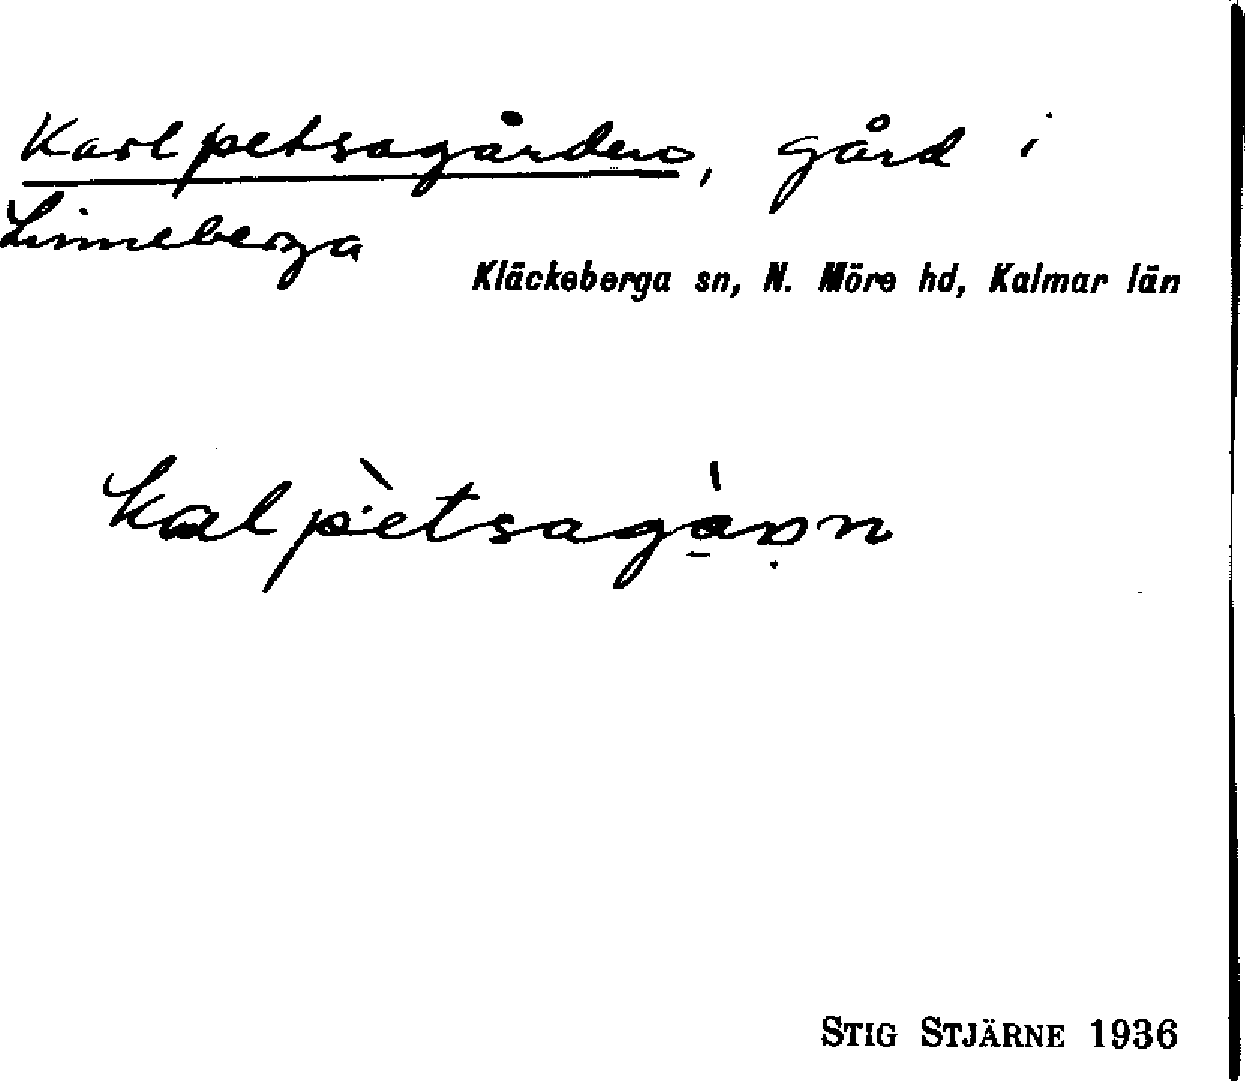 Karlpetsagården, gård i
Linneberga
Kläckeberga sn, N. Möre hd, Kalmar län
kalpètsagàn
STIG STJÄRNE 1936